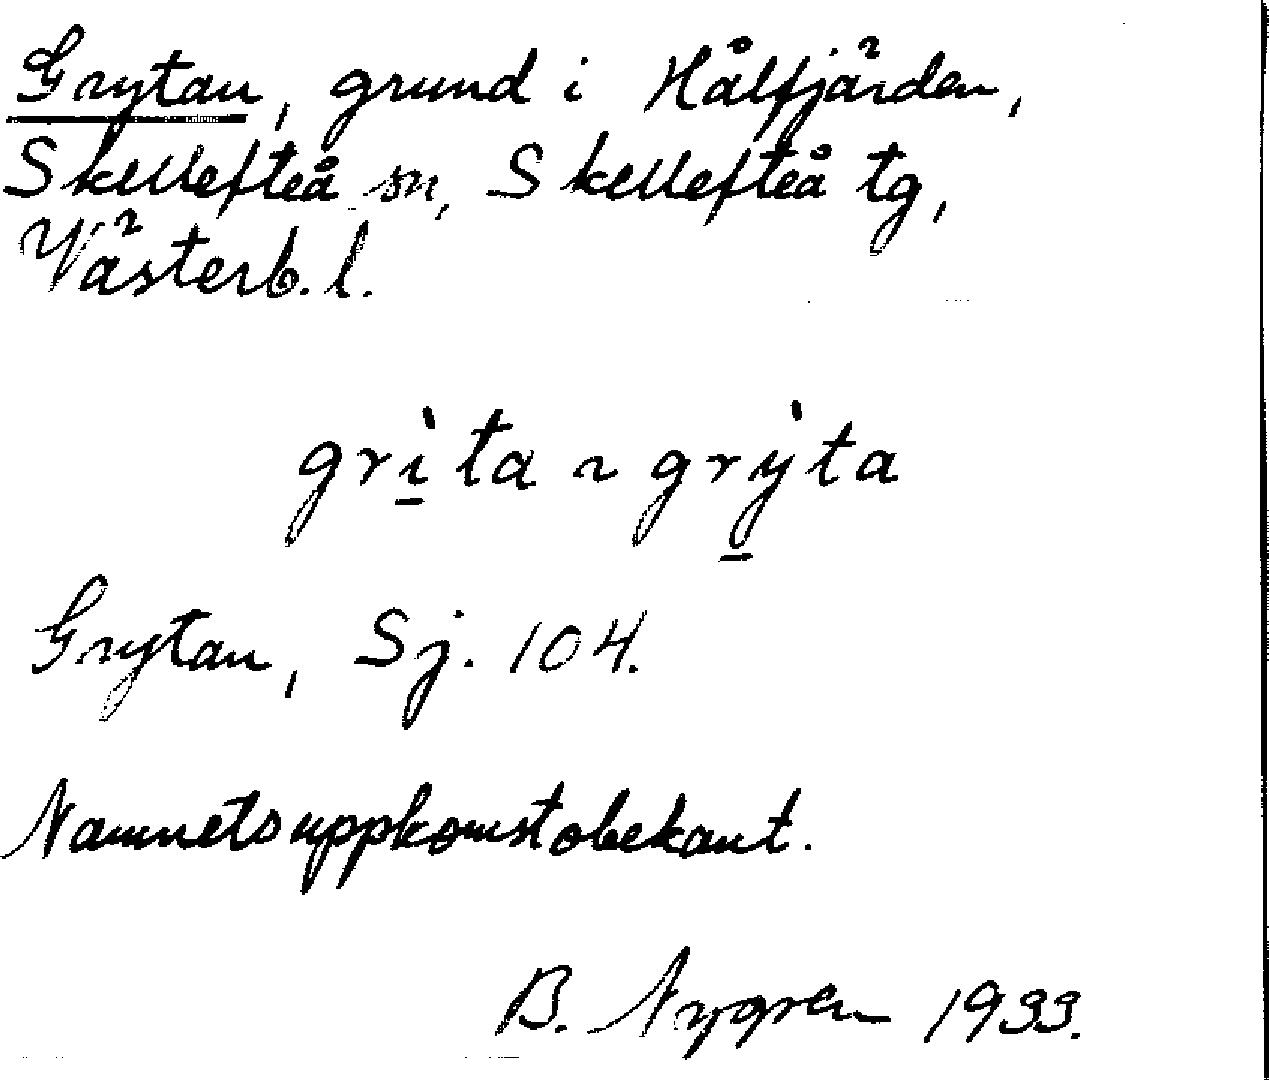 Grytan, grund i Hålfjärden,
Skellefteå sn, Skellefteå tg,
Västerb. l.
grı̲̀ta ~ grỳ̲ta
Grytan, Sj. 104.
Namnets uppkomst obekant.
B. Nygren 1933.